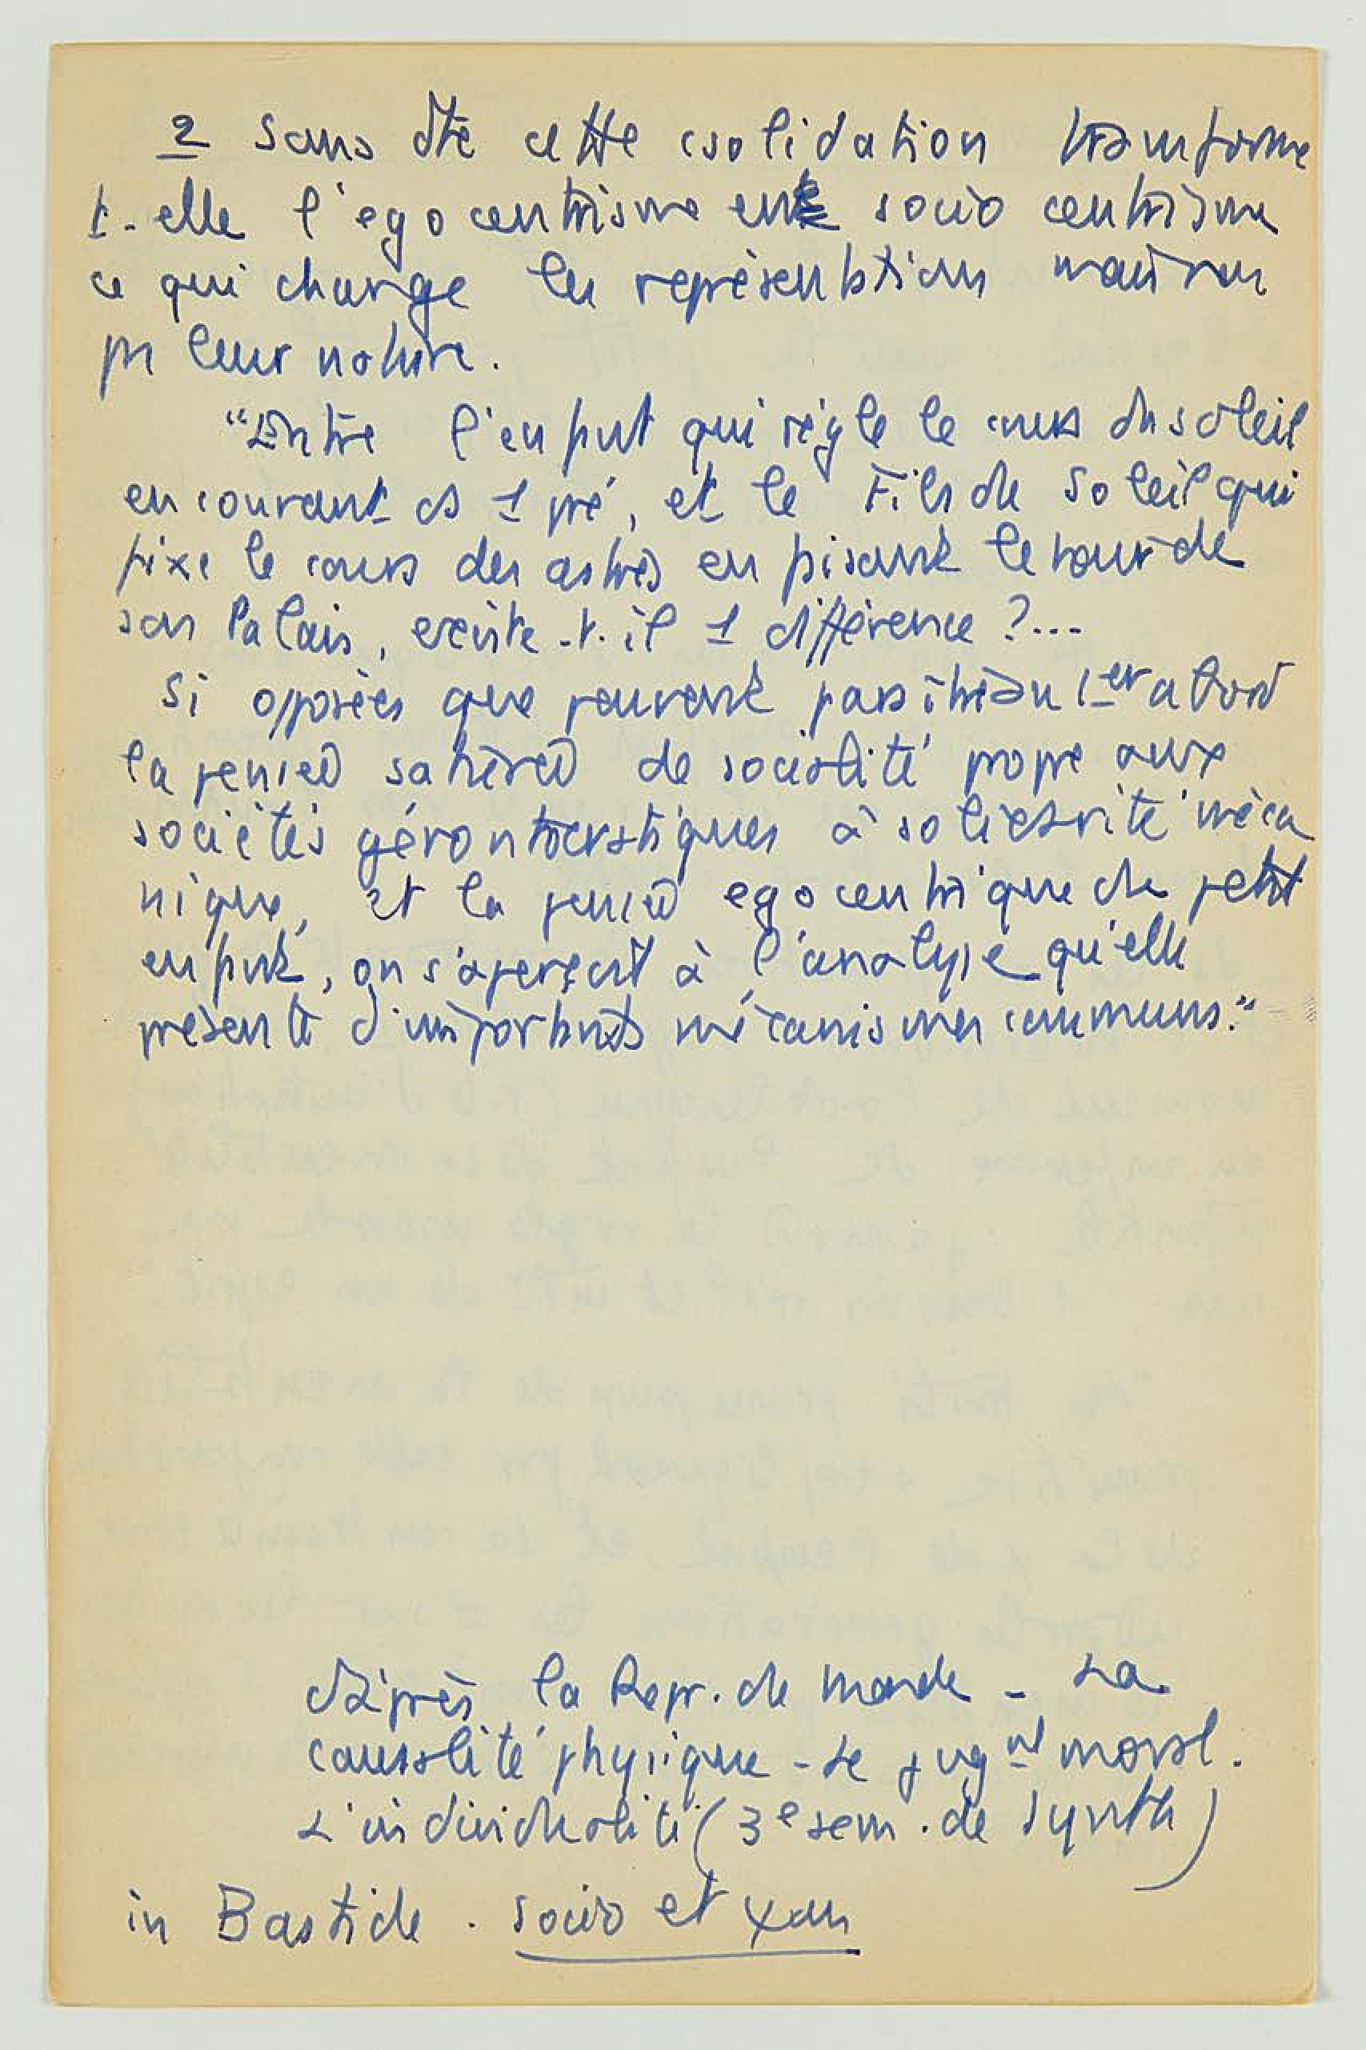 2 Sans dte cette csolidation transforme
t-elle l'egocentrisme en socio centrisme
ce qui change les représentations mais non
pr leur nature.
"Entre l'enfant qui règle le cours du soleil
en courant ds 1 pré, et le Fils du Soleil qui
fixe le cours des astres en faisant le tour de
son Palais, existe-t-il 1 différence ?...
Si opposées que peuvent paraître au 1er abord
la pensée de socialité propre aux
sociétés gérontocratiques à solidarité méca
nique, et la pensée egocentrique du petit
enfant, on s'aperçoit à l'analyse qu'elle
présente d'importants mécanismes communs."
d'après la Repr. du monde - La
causalité physique - Le jugnt moral.
L'individualité (3e sem. de Synth)
in Bastide . Socio et ψan